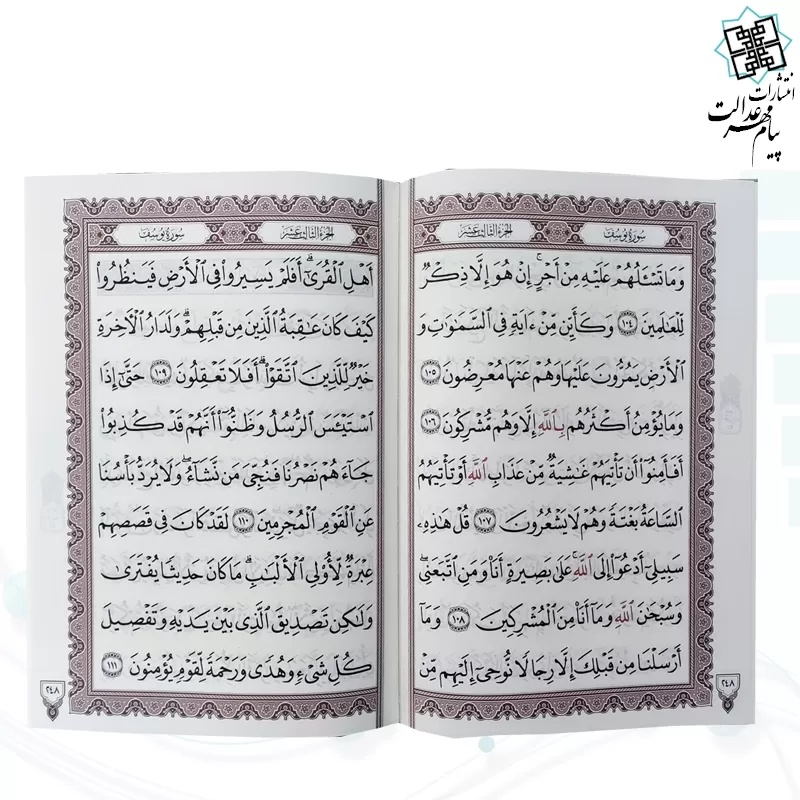 انتشارات
پیام مهر عدالت
سُورَةُ يُوسُف
الجزء الثالث عشر
وَمَا تَسْـَٔلُهُمْ عَلَيْهِ مِنْ أَجْرٍ ۚ إِنْ هُوَ إِلَّا ذِكْرٌ
لِّلْعَـٰلَمِينَ ١٠٤ وَكَأَيِّن مِّنْ ءَايَةٍ فِى ٱلسَّمَـٰوَٰتِ وَ
ٱلْأَرْضِ يَمُرُّونَ عَلَيْهَا وَهُمْ عَنْهَا مُعْرِضُونَ ١٠٥
وَمَا يُؤْمِنُ أَكْثَرُهُم بِٱللَّهِ إِلَّا وَهُم مُّشْرِكُونَ ١٠٦
أَفَأَمِنُوٓا۟ أَن تَأْتِيَهُمْ غَـٰشِيَةٌ مِّنْ عَذَابِ ٱللَّهِ أَوْ تَأْتِيَهُمُ
ٱلسَّاعَةُ بَغْتَةً وَهُمْ لَا يَشْعُرُونَ ١٠٧ قُلْ هَـٰذِهِۦ
سَبِيلِىٓ أَدْعُوٓا۟ إِلَى ٱللَّهِ ۚ عَلَىٰ بَصِيرَةٍ أَنَا۠ وَمَنِ ٱتَّبَعَنِى ۖ
وَسُبْحَـٰنَ ٱللَّهِ وَمَآ أَنَا۠ مِنَ ٱلْمُشْرِكِينَ ١٠٨ وَمَآ
أَرْسَلْنَا مِن قَبْلِكَ إِلَّا رِجَالًا نُّوحِىٓ إِلَيْهِم مِّنْ
٢٤٨
الجزء الثالث عشر
سُورَةُ يُوسُف
أَهْلِ ٱلْقُرَىٰٓ ۗ أَفَلَمْ يَسِيرُوا۟ فِى ٱلْأَرْضِ فَيَنظُرُوا۟
كَيْفَ كَانَ عَـٰقِبَةُ ٱلَّذِينَ مِن قَبْلِهِمْ ۗ وَلَدَارُ ٱلْـَٔاخِرَةِ
خَيْرٌ لِّلَّذِينَ ٱتَّقَوْا۟ ۗ أَفَلَا تَعْقِلُونَ ١٠٩ حَتَّىٰٓ إِذَا
ٱسْتَيْـَٔسَ ٱلرُّسُلُ وَظَنُّوٓا۟ أَنَّهُمْ قَدْ كُذِبُوا۟
جَآءَهُمْ نَصْرُنَا فَنُجِّىَ مَن نَّشَآءُ ۖ وَلَا يُرَدُّ بَأْسُنَا
عَنِ ٱلْقَوْمِ ٱلْمُجْرِمِينَ ١١٠ لَقَدْ كَانَ فِى قَصَصِهِمْ
عِبْرَةٌ لِّأُو۟لِى ٱلْأَلْبَـٰبِ ۗ مَا كَانَ حَدِيثًا يُفْتَرَىٰ
وَلَـٰكِن تَصْدِيقَ ٱلَّذِى بَيْنَ يَدَيْهِ وَتَفْصِيلَ
كُلِّ شَىْءٍ وَهُدًى وَرَحْمَةً لِّقَوْمٍ يُؤْمِنُونَ ١١١
٢٤٨